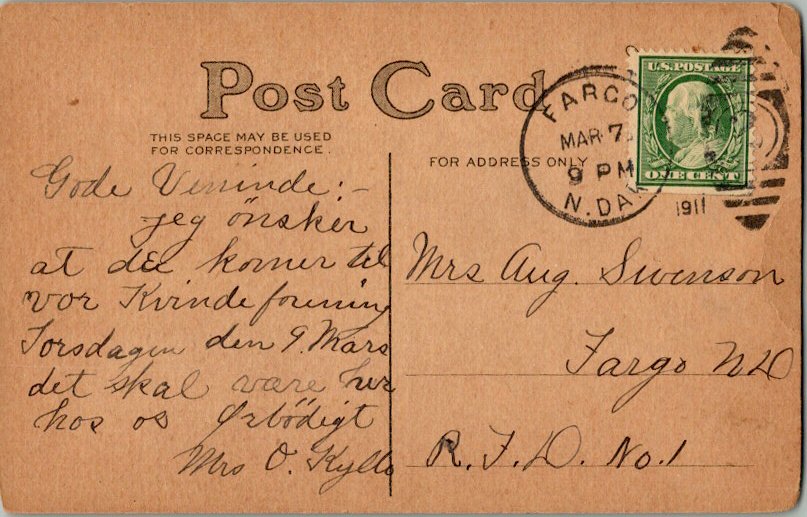 Post Card
THIS SPACE MAY BE USED
FOR CORRESPONDENCE.
FOR ADDRESS ONLY
U.S. POSTAGE
ONE CENT
FARGO
MAR 7
9 PM
N. DAK.
1911
Gode Veninde:-
jeg önsker
at du komer til
vor Kvindeforening
Torsdagen den 9. Mars
det skal være her
hos os Ærbödigt
Mrs O. Kyllo
Mrs Aug. Swenson
Fargo ND
R.F.D. No. 1